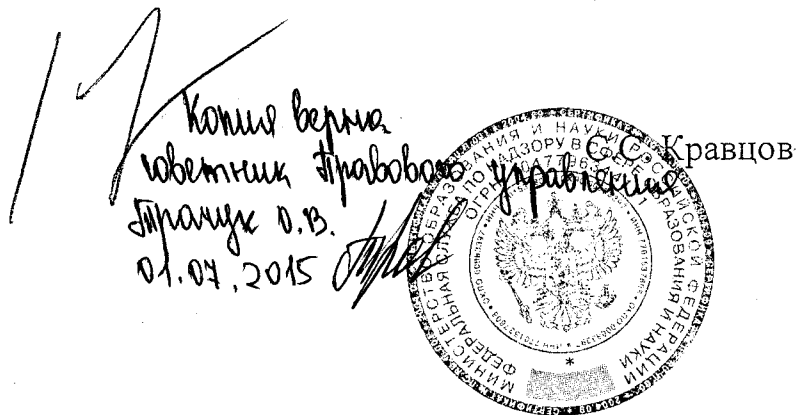 С.С. Кравцов
Копия верна
советник Правового управления
Трачук О.В.
01.07.2015
МИНИСТЕРСТВО ОБРАЗОВАНИЯ И НАУКИ РОССИЙСКОЙ ФЕДЕРАЦИИ
ФЕДЕРАЛЬНАЯ СЛУЖБА ПО НАДЗОРУ В СФЕРЕ ОБРАЗОВАНИЯ И НАУКИ